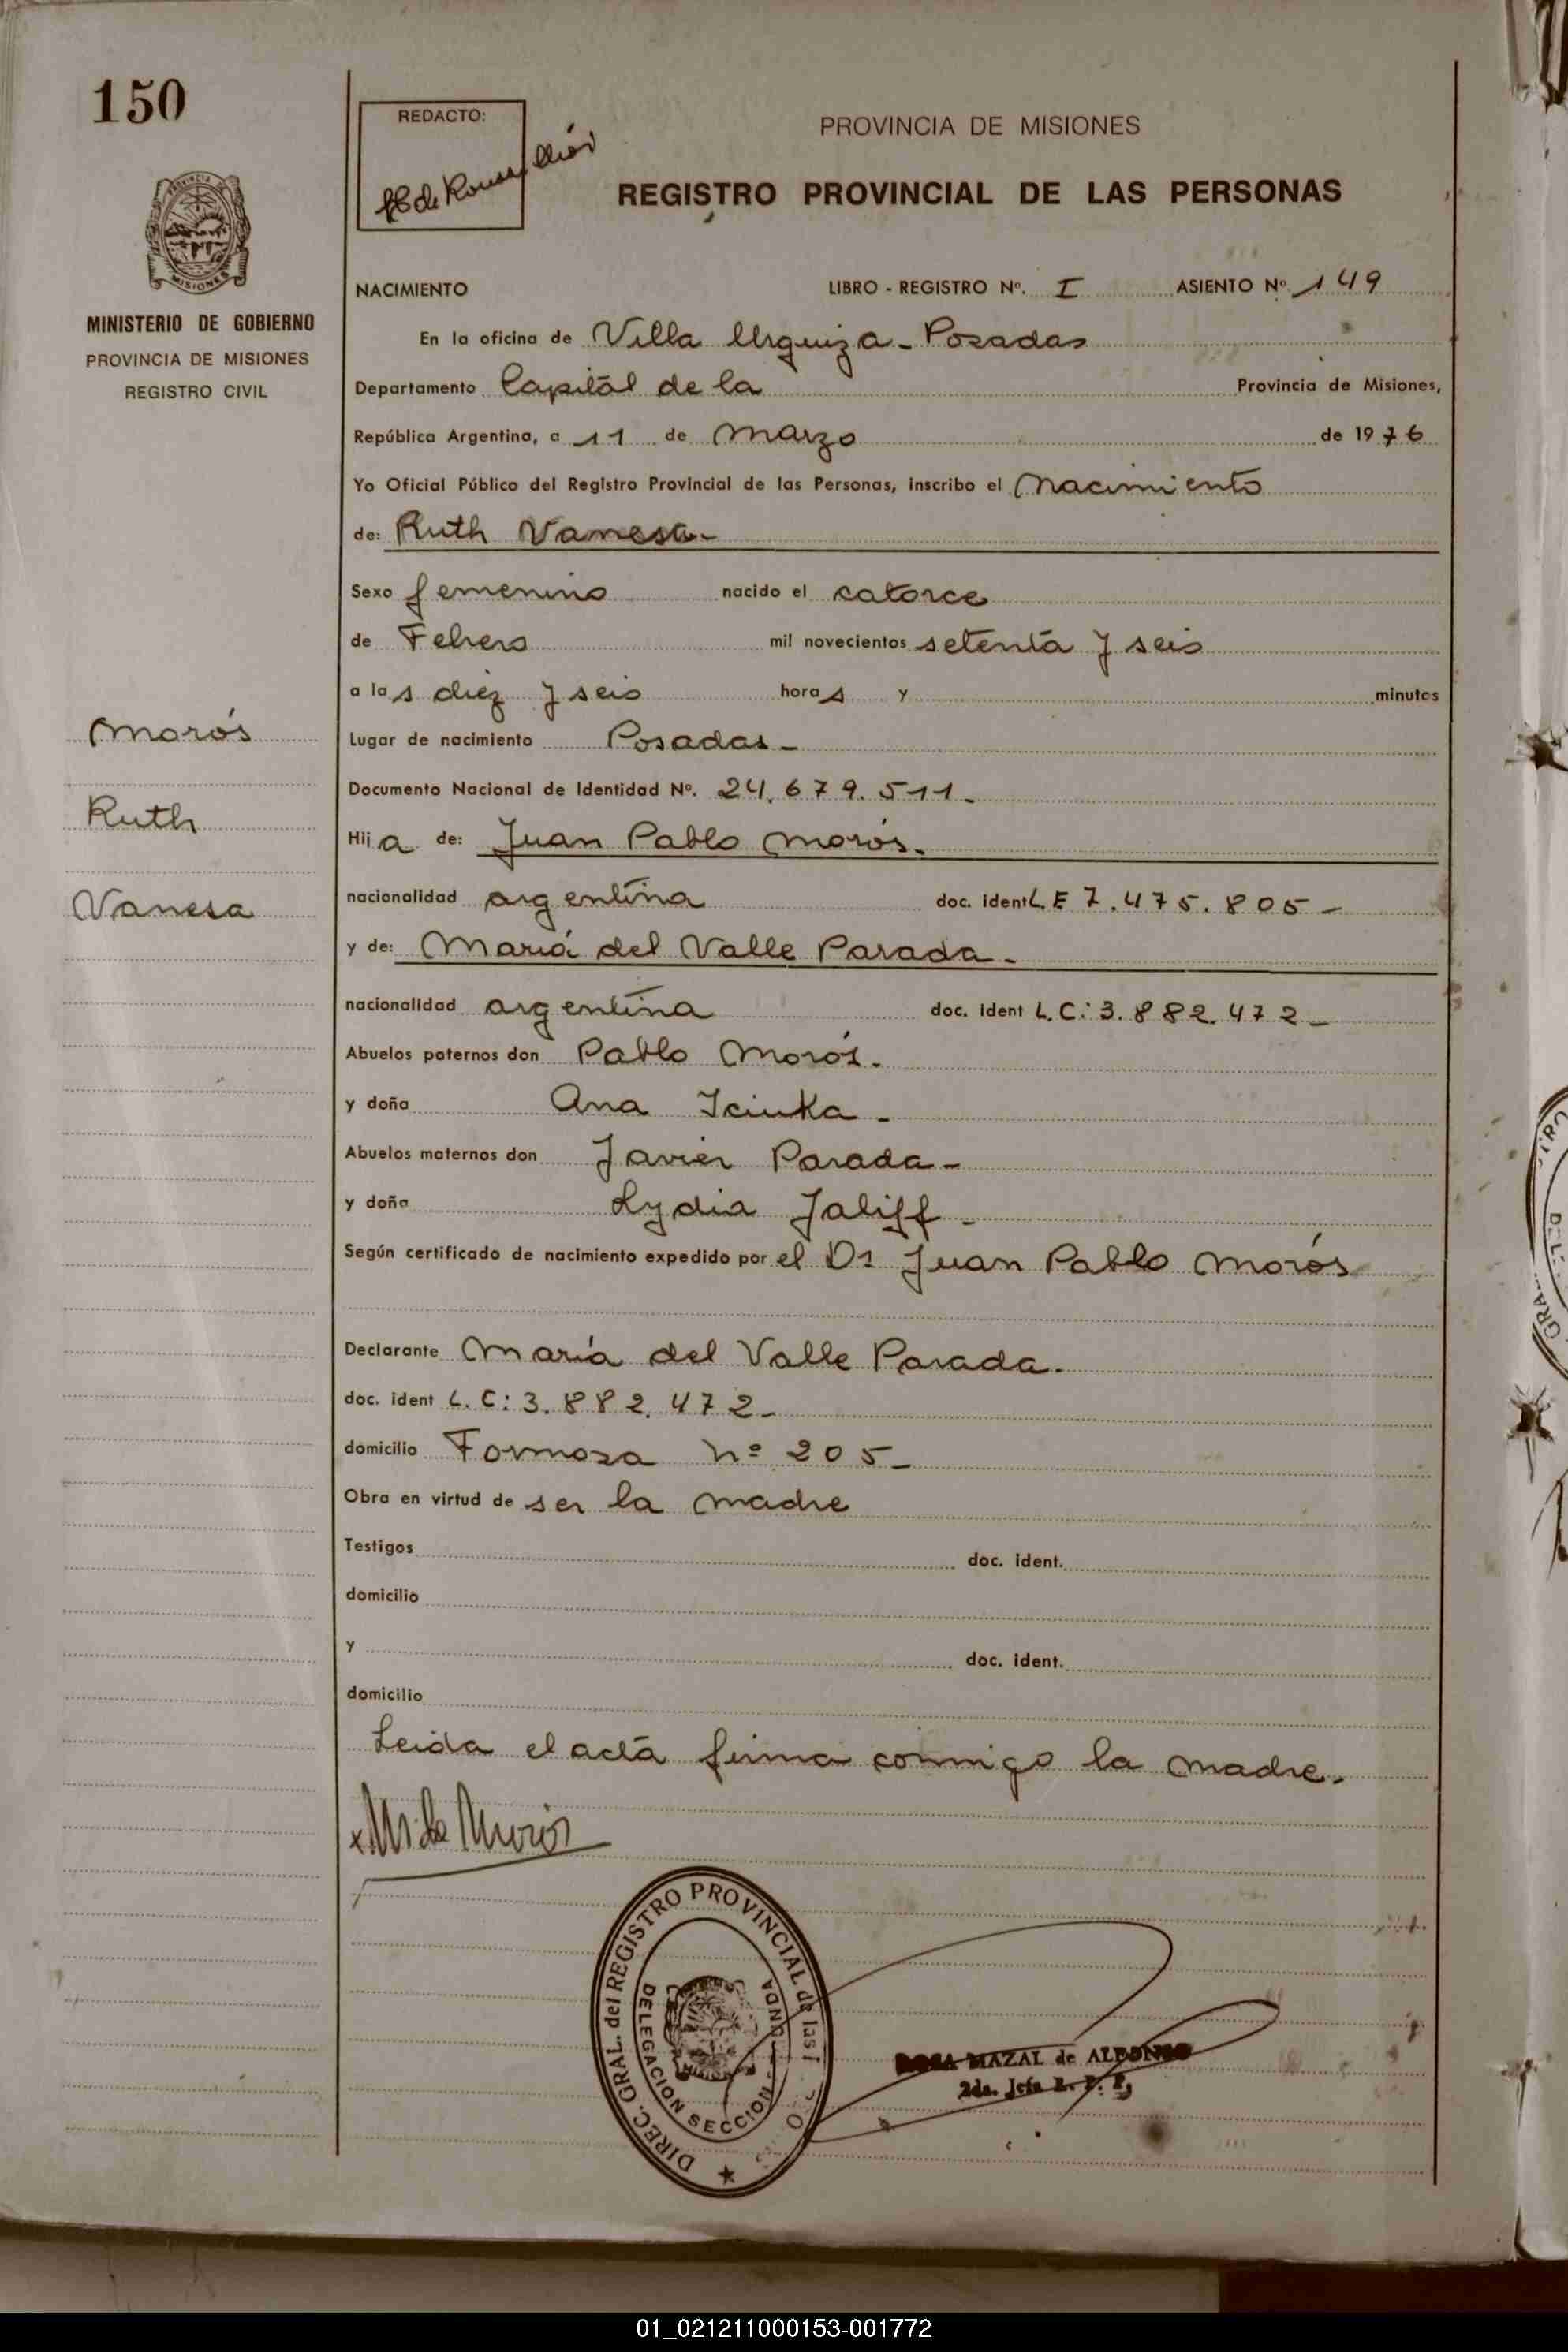 150
REDACTO:
PROVINCIA DE MISIONES
REGISTRO PROVINCIAL DE LAS PERSONAS
MISIONES
MINISTERIO DE GOBIERNO
PROVINCIA DE MISIONES
REGISTRO CIVIL
NACIMIENTO LIBRO - REGISTRO Nº. I ASIENTO Nº. 149
En la oficina de Villa Urquiza - Posadas
Departamento Capital de la Provincia de Misiones,
República Argentina, a 11 de Marzo de 1976
Yo Oficial Público del Registro Provincial de las Personas, inscribo el Nacimiento
de: Ruth Vanesa-
Sexo femenino nacido el catorce
de Febrero mil novecientos setenta y seis
a las diez y seis horas y minutos
Morós
Lugar de nacimiento Posadas -
Documento Nacional de Identidad Nº. 24.679.511.
Ruth
Hija de: Juan Pablo Morós.
Vanesa
nacionalidad argentina doc. ident L.E 7.475.805 -
y de: María del Valle Parada.
nacionalidad argentina doc. ident L.C: 3.882.472 -
Abuelos paternos don Pablo Morós.
y doña Ana Iciuka -
Abuelos maternos don Javier Parada -
y doña Lydia Jaliff -
Según certificado de nacimiento expedido por el Dr Juan Pablo Morós
Declarante María del Valle Parada.
doc. ident L.C: 3.882.472 -
domicilio Formosa nº 205 -
Obra en virtud de ser la madre
Testigos doc. ident.
domicilio
y doc. ident.
domicilio
Leida el acta firma conmigo la madre.
DIREC. GRAL. del REGISTRO PROVINCIAL de las
DELEGACION SECCION
ROSA MAZAL de ALFONSO
2da. Jefa R. P. P.
01_021211000153-001772